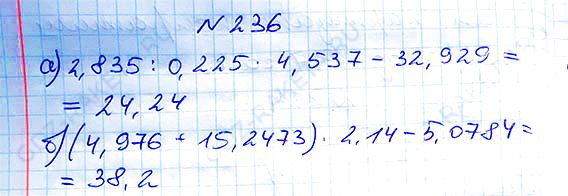 N 236
а) 2,835 : 0,225 · 4,537 - 32,929 =
= 24,24
б) (4,976 + 15,2473) · 2,14 - 5,0784 =
= 38,2